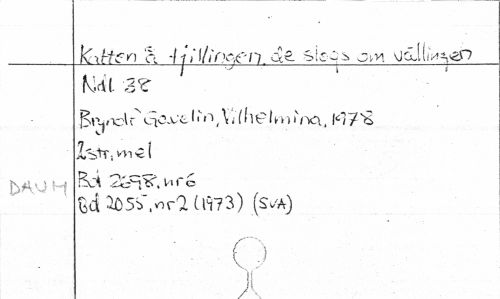 Katten å tjillingen, de slogs om vällingen
Ndl 38
Bryndt Gavelin, Vilhelmina, 1978
2str, mel
Bd 2698, nr 6
DAUM Bd 2055, nr 2 (1973) (SVA)